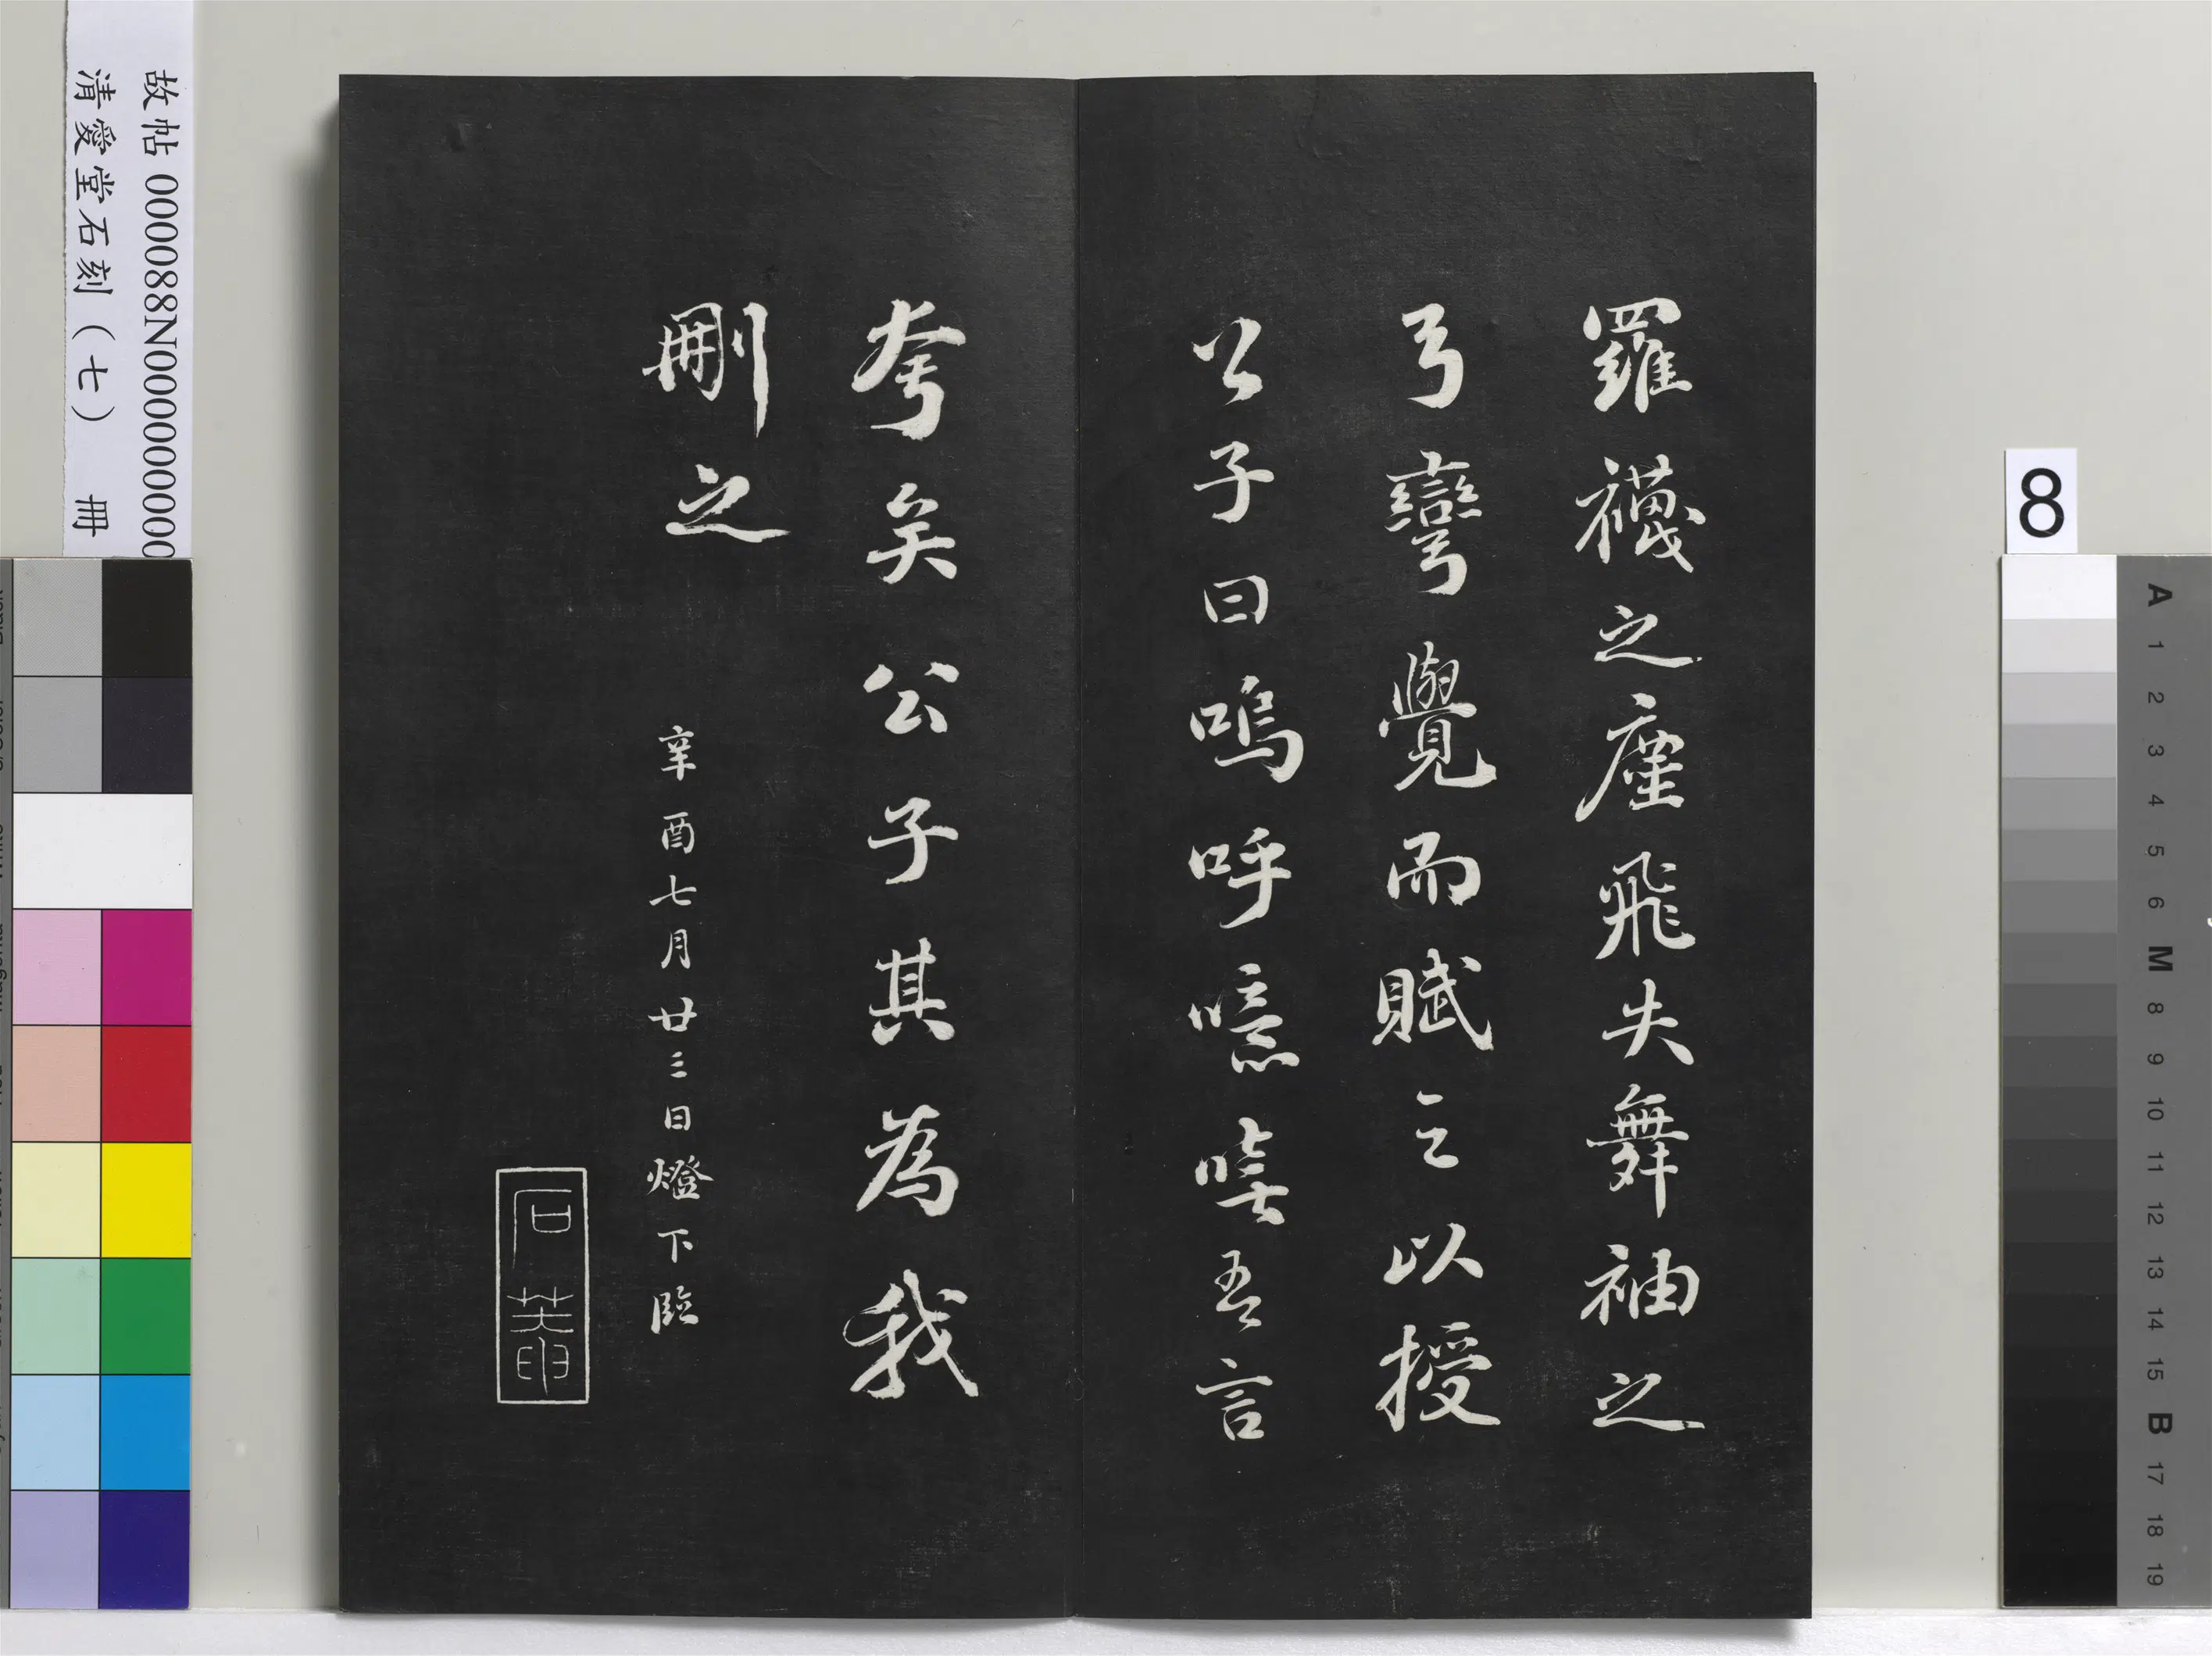 羅襪之塵飛失舞袖之
弓彎覺而賦之以授
公子曰嗚呼噫嘻吾言
夸矣公子其為我
刪之
辛酉七月廿三日燈下臨
石菴
故帖 000088N000000000
清愛堂石刻(七) 冊
8
A 1 2 3 4 5 6 M 8 9 10 11 12 13 14 15 B 17 18 19